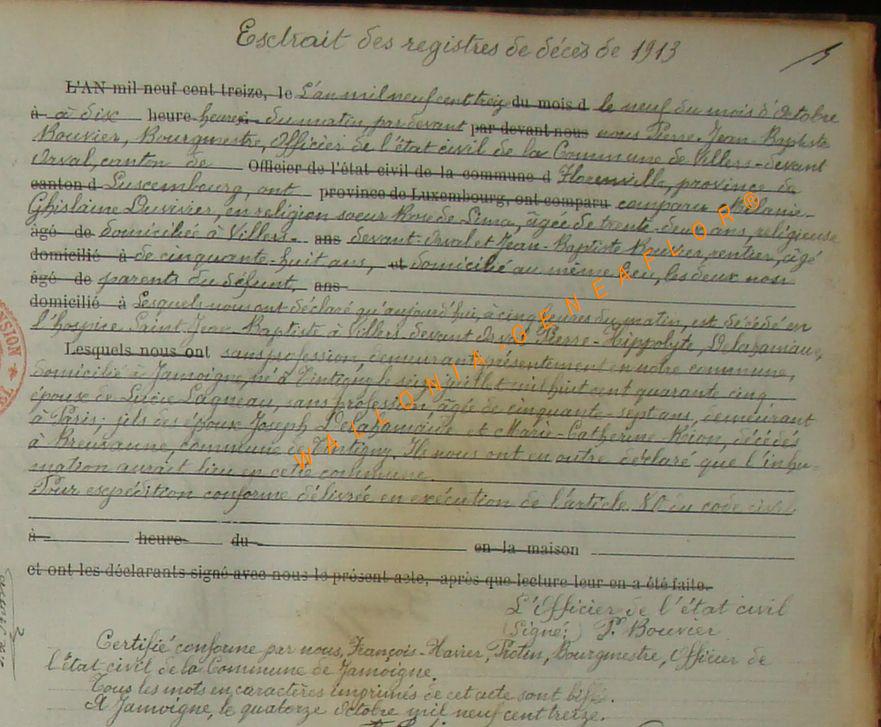 Esctrait des registres de décès de 1913
L'AN mil neuf cent treize, le L'an mil neuf cent treiz du mois d le neuf du mois d'Octobre
à à dix heure heures du matin, par devant par devant nous nous Pierre-Jean-Baptiste
Bouvier, Bourgmestre, Officier de l'état civil de la Commune de Villers-devant
Orval, canton de Officier de l'état civil de la commune d Florenville, province de
canton d Luxembourg, ont province de Luxembourg, ont comparu comparu Mélanie-
Ghislaine Duvivier, en religion soeur Rose de Lima, âgée de trente-deux ans, religieuse
âgé de domiciliée à Villers- ans devant-Orval et Jean-Baptiste Bouvier, rentier, âgé
domicilié à de cinquante-huit ans, et domicilié au même lieu, les deux non
âgé de parents du défunt, ans
domicilié à Lesquels nous ont déclaré qu'aujourd'hui, à cinq heures du matin, est décédé en
l'hospice Saint Jean Baptiste à Villers devant Orval Pierre-Hippolyte, Delahamaide,
Lesquels nous ont sans profession, demeurant présentement en notre commune,
domicilié à Jamoigne, né à Tintigny le seize juillet mil huit cent quarante cinq
épouse de Lucie Lagneau, sans profession, âgée de cinquante-sept ans, demeurant
à Paris; fils des époux Joseph Delahamaide et Marie-Catherine décédés
à Breuvanne, commune de Tintigny. Ils nous ont en outre déclaré que l'inhu-
mation aurait lieu en cette commune.
Pour expédition conforme délivrée en exécution de l'article 80 du code civil
à heure du en la maison
et ont les déclarants signé avec nous le présent acte, après que lecture leur en a été faite.
L'Officier de l'état civil
(Signé:) P. Bouvier
Certifié conforme par nous, François-Xavier, Protin, Bourgmestre, Officier de
l'état civil de la Commune de Jamoigne.
Tous les mots en caractères imprimés de cet acte sont biffés.
A Jamoigne, le quatorze Octobre mil neuf cent treize.
WALLONIA-GENEAFLOR®